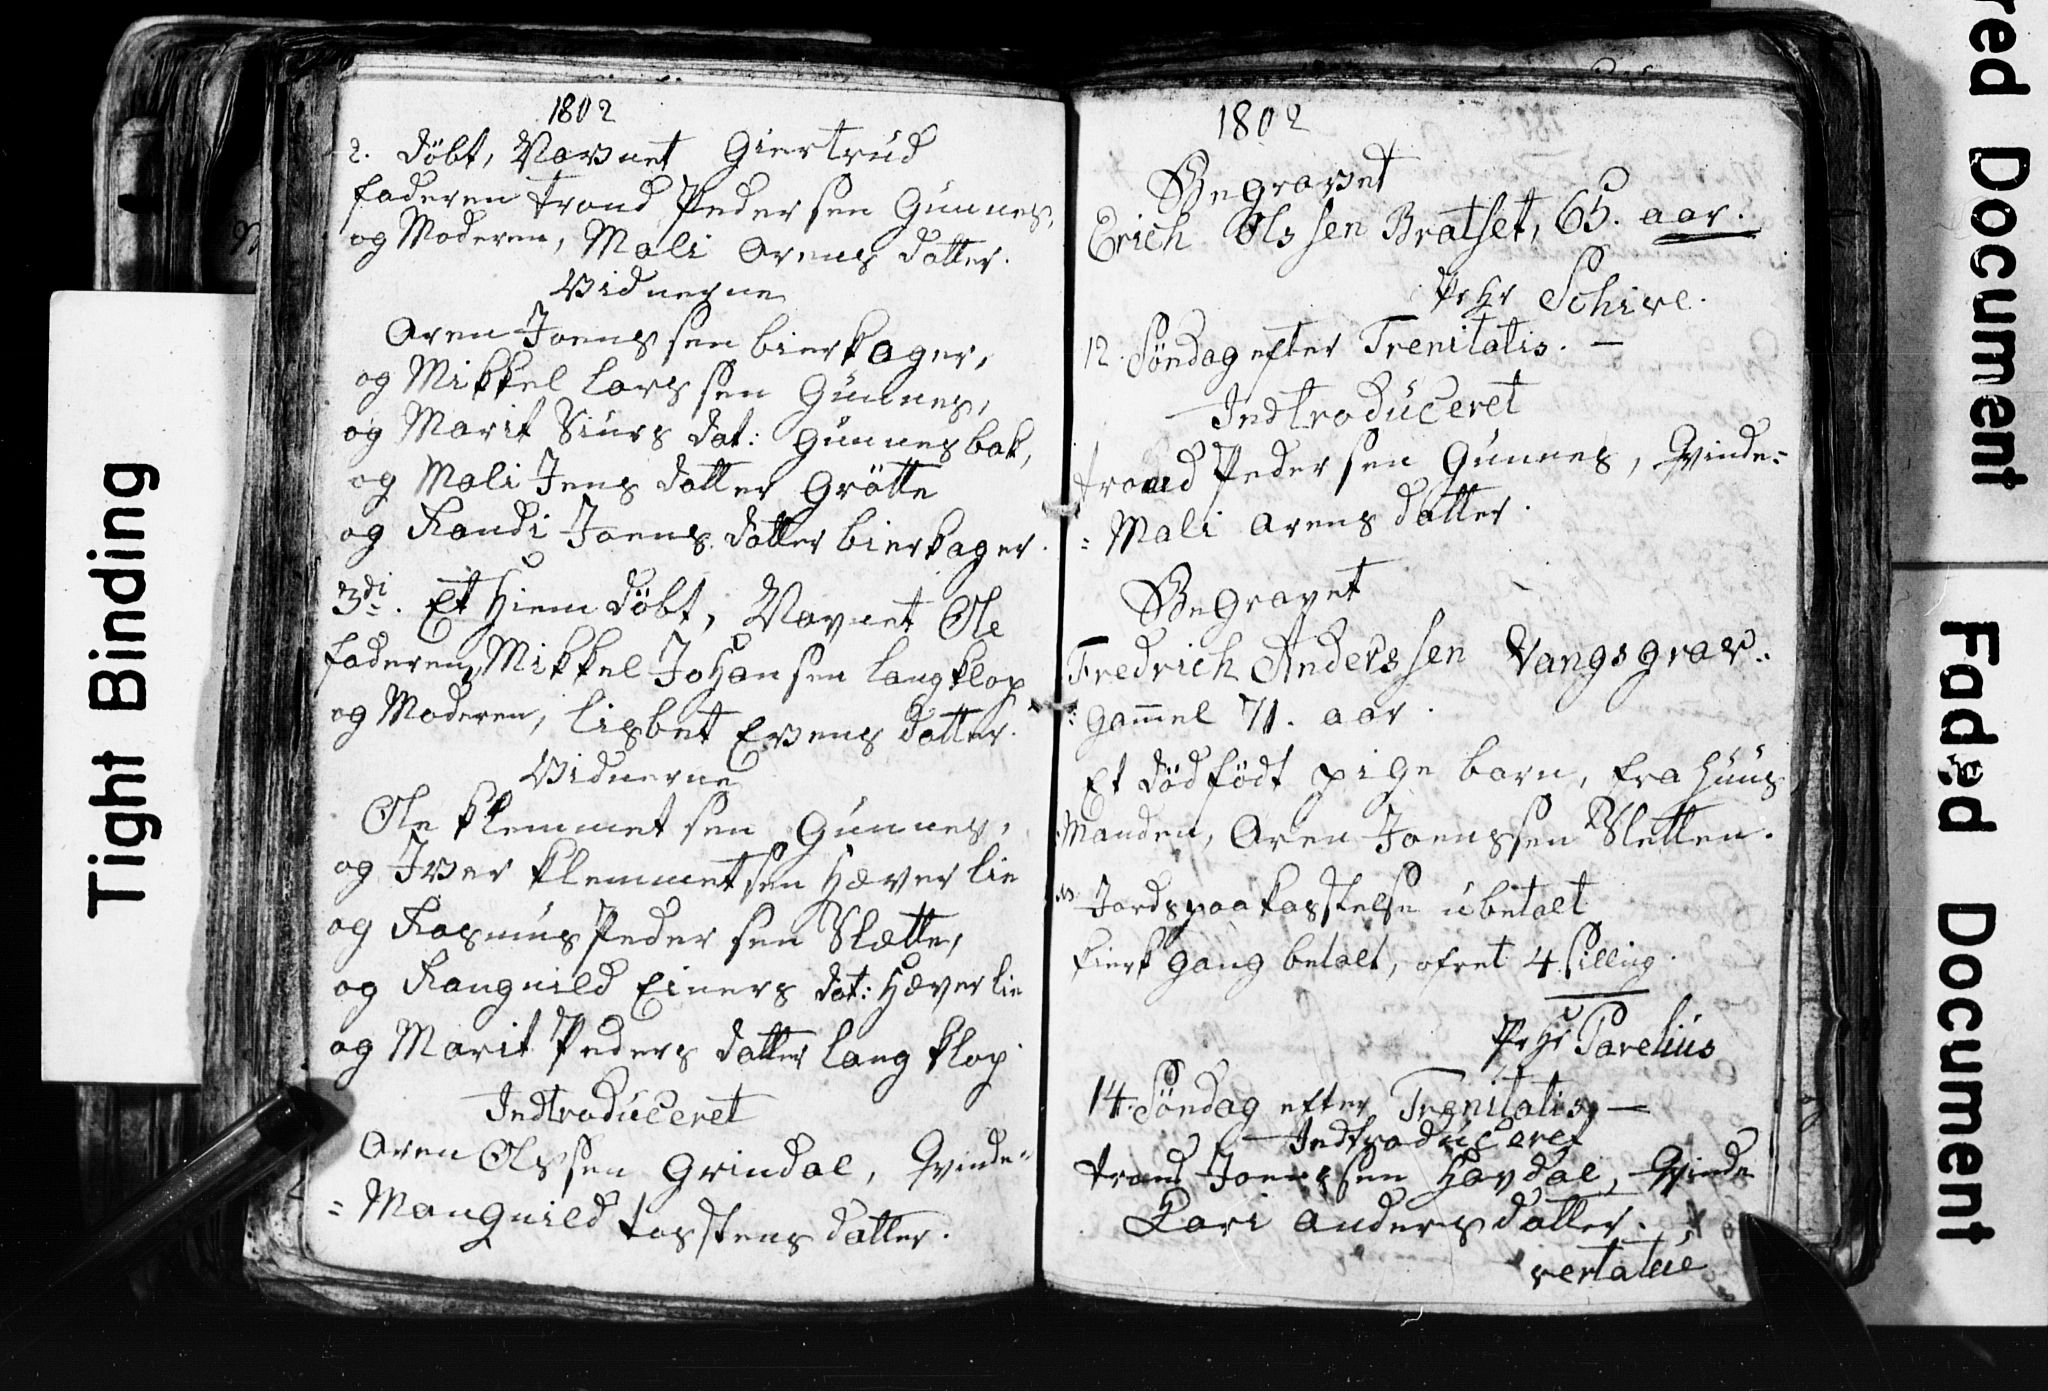 1802
2. döbt, Navnet Giertrud
faderen trond Pedersen Gunnes,
og Moderen, Mali Arens datter.
Vidnerne
Aren Joenssen bierkager,
og Mikkel larssen Gunnes,
og Marit Siurs dat: Gunnesbak,
og Mali Jens datter Grötte
og Randi Joens datter bierkager.
3di. Et Hiemdöbt, Navnet Ole
faderen, Mikkel Johansen langklop
og Moderen, lisbet Evens datter.
Vidnerne
Ole klemmetsen Gunnes,
og Iver klemmetsen Hæverlie
og Rasmus Pedersen Slætte,
og Rangnild Einers dat: Hæverlie
og Marit Peders datter langklop
Indtroduceret
Aren Olssen Grindal, Qvinde=
= Mangnild tosstens datter.
1802
Begravet
Erich Olssen Bratset, 65. aar.
Pr Hr Schive.
12. Söndag efter Trenitatis. —
Indtroduceret
trond Pedersen Gunnes, Qvinde=
= Mali Arens datter.
Begravet
Fredrich Anderssen Vangsgrav..
: gam̄el 71. aar.
Et dödfödt pige barn, fra Huus
Manden, Aren Joenssen Sletten.
Jordspaakastelse ubetalt
kierkgang betalt, ofret 4 silling.
Pr Hr Parelius
14. Söndag efter Trenitatis —
Indtroduceret
trond Joenssen Havdal, Qvinde
Kari Anders datter.
vertatue
red Document
Faded Document
Tight Binding